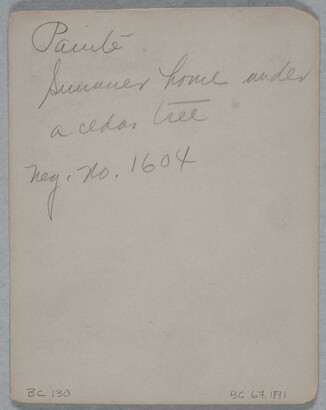 Paiute.
Summer home under
a cedar tree
neg. no. 1604
BC 130
BC 67.1771